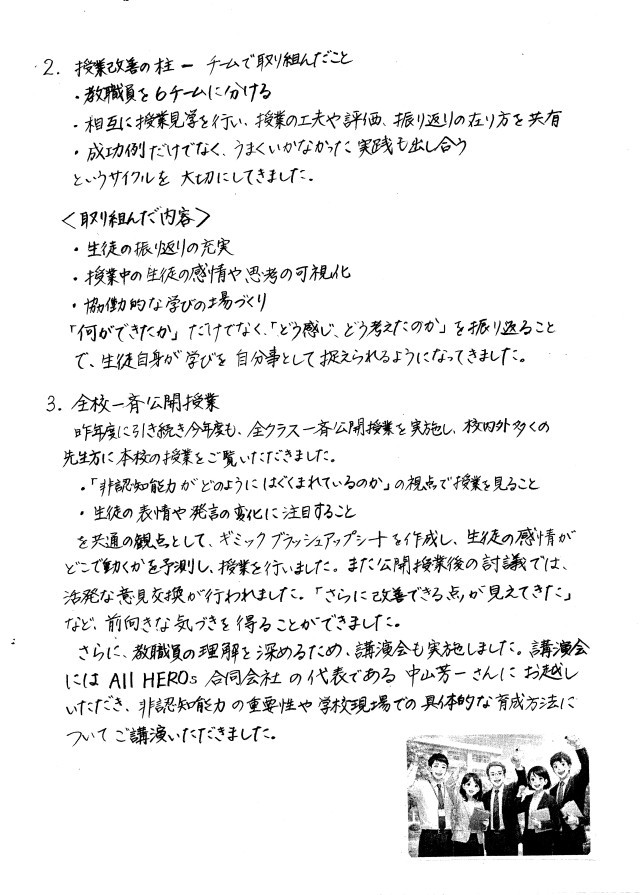 2. 授業改善の柱 ー チームで取り組んだこと
・教職員を6チームに分ける
・相互に授業見学を行い、授業の工夫や評価、振り返りの在り方を共有
・成功例だけでなく、うまくいかなかった実践も出し合う
というサイクルを大切にしてきました。
＜取り組んだ内容＞
・生徒の振り返りの充実
・授業中の生徒の感情や思考の可視化
・協働的な学びの場づくり
「何ができたか」だけでなく、「どう感じ、どう考えたのか」を振り返ること
で、生徒自身が学びを自分事として捉えられるようになってきました。
3. 全校一斉公開授業
昨年度に引き続き今年度も、全クラス一斉公開授業を実施し、校内外多くの
先生方に本校の授業をご覧いただきました。
・「非認知能力がどのようにはぐくまれているのか」の視点で授業を見ること
・生徒の表情や発言の変化に注目すること
を共通の観点として、ギミックブラッシュアップシートを作成し、生徒の感情が
どこで動くかを予測し、授業を行いました。また公開授業後の討議では、
活発な意見交換が行われました。「さらに改善できる点が見えてきた」
など、前向きな気づきを得ることができました。
さらに、教職員の理解を深めるため、講演会も実施しました。講演会
には All HEROs 合同会社の代表である中山芳一さんにお越し
いただき、非認知能力の重要性や学校現場での具体的な育成方法に
ついてご講演いただきました。